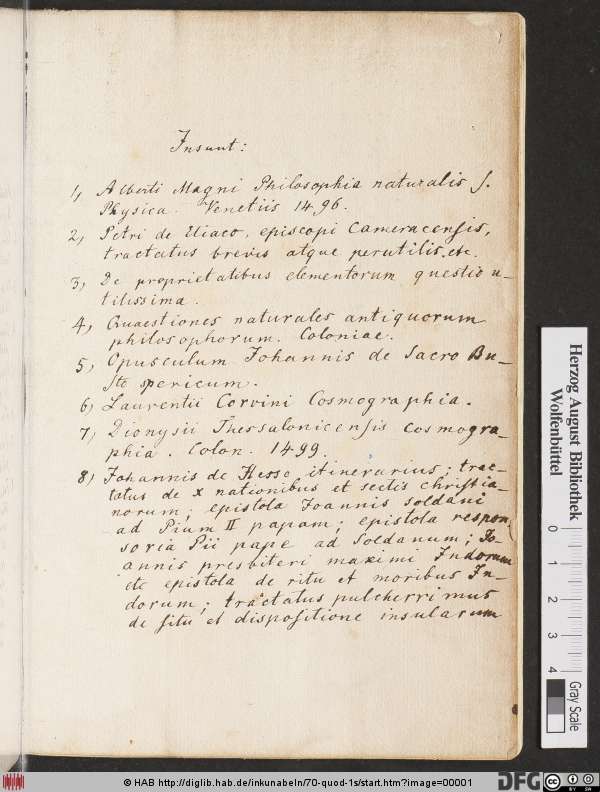 Insunt:
1, Alberti Magni Philosophia naturalis s.
Physica. Venetiis 1496.
2, Petri de Eliaco, episcopi Cameracensis,
tractatus brevis atque perutilis. etc.
3, De proprietatibus elementorum questio u-
tilissima.
4, Quaestiones naturales antiquorum
philosophorum. Coloniae.
5, Opusculum Johannis de Sacro Bu-
sto spericum.
6, Laurentii Corvini Cosmographia.
7, Dionysii Thessalonicensis cosmogra-
phia. Colon. 1499.
8, Johannis de Hesse itinerarius; trac-
tatus de X nationibus et sectis christia-
norum; epistola Joannis soldani
ad Pium II papam; epistola respon
soria Pii pape ad Soldanum; Jo-
annis presbiteri maximi Indorum
etc epistola de ritu et moribus In-
dorum; tractatus pulcherrimus
de situ et dispositione insularum
Herzog August Bibliothek
Wolfenbüttel
0 1 2 3 4
Gray Scale
© HAB http://diglib.hab.de/inkunabeln/70-quod-1s/start.htm?image=00001
DFG
CC BY SA